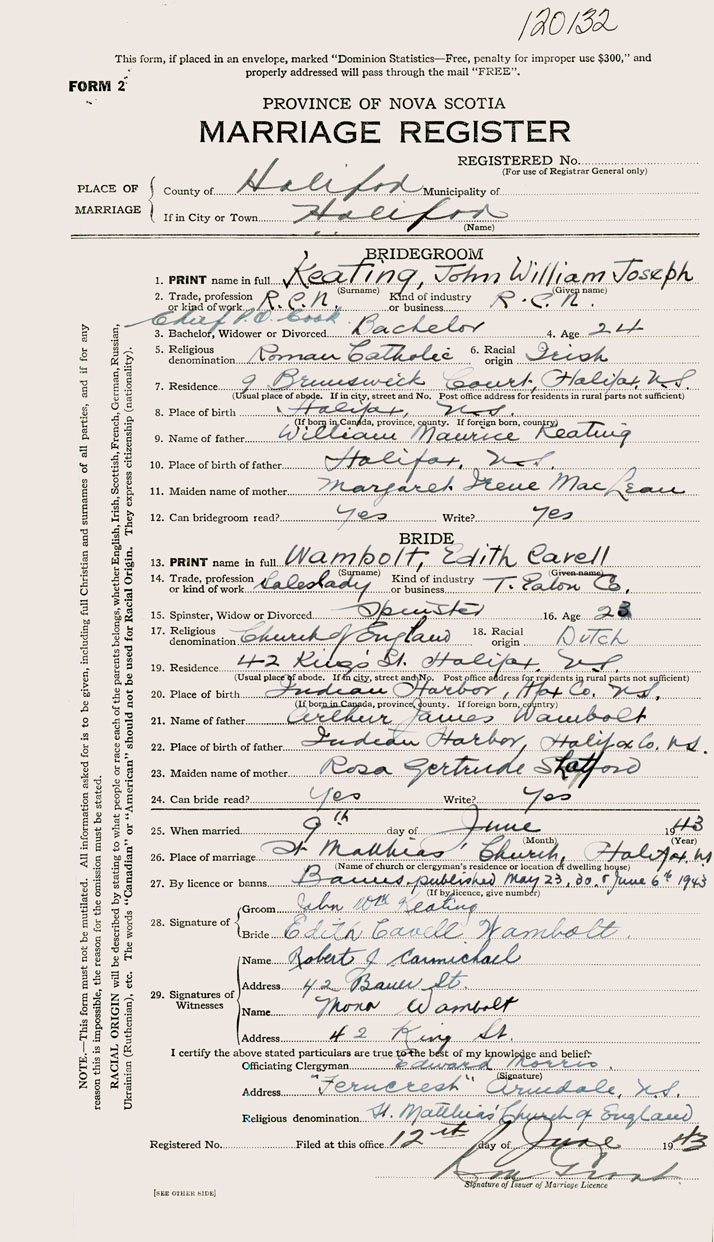 120132
This form, if placed in an envelope, marked "Dominion Statistics—Free, penalty for improper use $300," and
properly addressed will pass through the mail "FREE".
FORM 2
PROVINCE OF NOVA SCOTIA
MARRIAGE REGISTER
REGISTERED No.
(For use of Registrar General only)
PLACE OF MARRIAGE
County of Halifax Municipality of
If in City or Town Halifax
(Name)
BRIDEGROOM
1. PRINT name in full Keating, John William Joseph
(Surname) (Given name)
2. Trade, profession or kind of work R.C.N. Kind of industry or business R.C.N.
Chief P.O. Cook
3. Bachelor, Widower or Divorced Bachelor 4. Age 24
5. Religious denomination Roman Catholic 6. Racial origin Irish
7. Residence 9 Brunswick Court, Halifax, N.S.
(Usual place of abode. If in city, street and No. Post office address for residents in rural parts not sufficient)
8. Place of birth Halifax, N.S.
(If born in Canada, province, county. If foreign born, country)
9. Name of father William Maurice Keating
10. Place of birth of father Halifax, N.S.
11. Maiden name of mother Margaret Irene MacLean
12. Can bridegroom read? Yes Write? Yes
BRIDE
13. PRINT name in full Wambolt, Edith Cavell
(Surname) (Given name)
14. Trade, profession or kind of work Saleslady Kind of industry or business T. Eaton Co.
15. Spinster, Widow or Divorced Spinster 16. Age 23
17. Religious denomination Church of England 18. Racial origin Dutch
19. Residence 42 King's St. Halifax, N.S.
(Usual place of abode. If in city, street and No. Post office address for residents in rural parts not sufficient)
20. Place of birth Indian Harbor, Hfx Co. N.S.
(If born in Canada, province, county. If foreign born, country)
21. Name of father Arthur James Wambolt
22. Place of birth of father Indian Harbor, Halifax Co. N.S.
23. Maiden name of mother Rosa Gertrude Shatford
24. Can bride read? Yes Write? Yes
25. When married 9th day of June 1943
(Month) (Year)
26. Place of marriage St Matthias' Church, Halifax, NS
(Name of church or clergyman's residence or location of dwelling house)
27. By licence or banns Banns, published May 23, 30, & June 6th 1943
(If by licence, give number)
28. Signature of
Groom John Wm Keating
Bride Edith Cavell Wambolt.
29. Signatures of Witnesses
Name Robert J Carmichael
Address 42 Bauer St.
Name Mona Wambolt
Address 42 King St.
I certify the above stated particulars are true to the best of my knowledge and belief:
Officiating Clergyman Edward Morris.
(Signature)
Address "Ferncrest" Armdale, N.S.
Religious denomination St. Matthias' Church of England
Registered No. Filed at this office 12th day of June 1943
Signature of Issuer of Marriage Licence
[SEE OTHER SIDE]
NOTE.—This form must not be mutilated. All information asked for is to be given, including full Christian and surnames of all parties, and if for any
reason this is impossible, the reason for the omission must be stated.
RACIAL ORIGIN will be described by stating to what people or race each of the parents belongs, whether English, Irish, Scottish, French, German, Russian,
Ukrainian (Ruthenian), etc. The words "Canadian" or "American" should not be used for Racial Origin. They express citizenship (nationality).